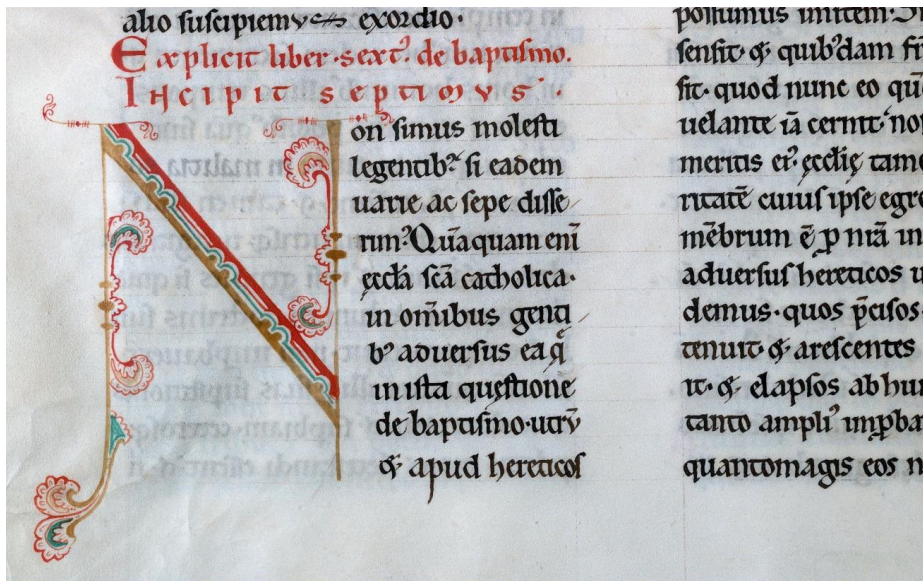 alio suscipiemus exordio.
Explicit liber .sext᾽. de baptismo.
Incipit septimus
Non simus molesti
legentib᾽ si eadem
uarie ac sepe disse
rim᾽. Quãquam eni᷃
eccla᷃ sca᷃ catholica.
in om᷃ibus genti
b᾽ aduersus ea q᷃
in ista questione
de baptismo. utru᷃
& apud hereticos
possumus
sensit. & quib᾽dam
fit. quod nunc eo
uelante ia᷃ cernit.
meritis ei᾽. ecclie᷃
ritate᷃ cuius ipse
me᷃brum e᷃
aduersus hereticos
demus. quos p᷃cisos.
tenuit. & arescentes
it. & elapsos ab
tanto ampli᾽
quantomagis eos